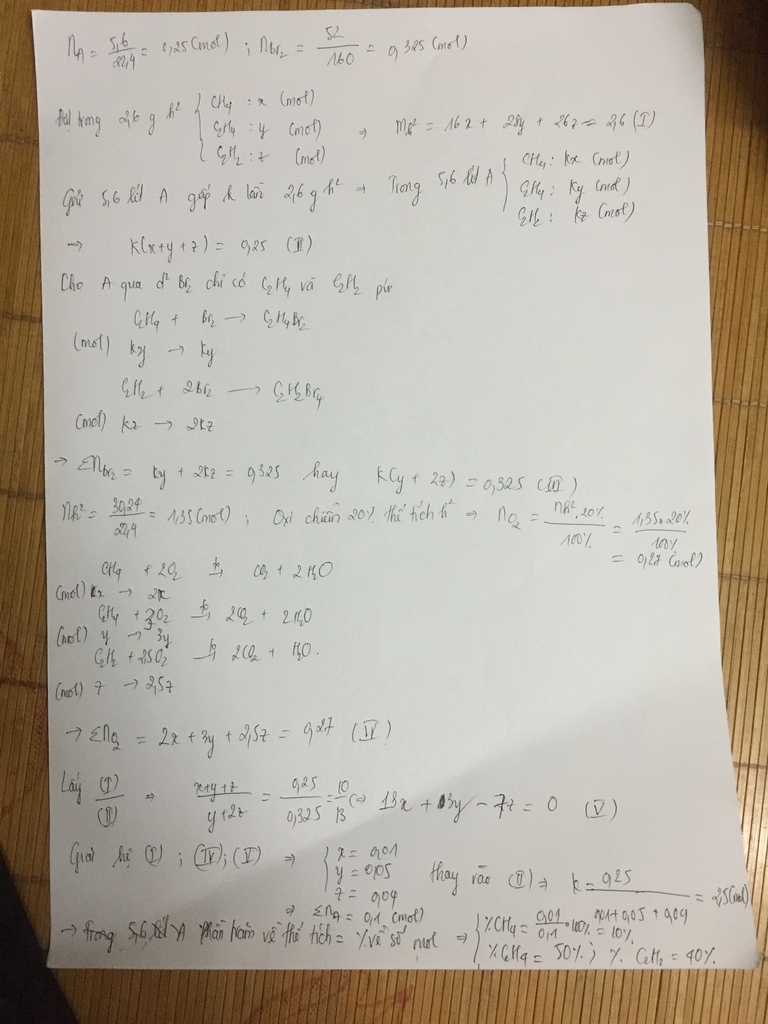 n_A = 5,6/22,4 = 0,25 (mol) ; n_Br2 = 52/160 = 0,325 (mol)
Đặt trong 2,6 g h² { CH4 : x (mol)
C2H4 : y (mol) ⇒ m_h² = 16x + 28y + 26z = 2,6 (I)
C2H2 : z (mol)
Giả sử 5,6 lít A gấp k lần 2,6 g h² ⇒ Trong 5,6 lít A { CH4 : kx (mol)
C2H4 : ky (mol)
C2H2 : kz (mol)
→ k(x+y+z) = 0,25 (II)
Cho A qua d² Br2 chỉ có C2H4 và C2H2 pư
C2H4 + Br2 → C2H4Br2
(mol) ky → ky
C2H2 + 2Br2 → C2H2Br4
(mol) kz → 2kz
→ Σn_Br2 = ky + 2kz = 0,325 hay k(y + 2z) = 0,325 (III)
n_h² = 30,24/22,4 = 1,35 (mol) ; Oxi chiếm 20% thể tích h² ⇒ n_O2 = n_h².20%/100% = 1,35.20%/100%
= 0,27 (mol)
CH4 + 2O2 →(t°) CO2 + 2H2O
(mol) x → 2x
C2H4 + 3O2 →(t°) 2CO2 + 2H2O
(mol) y → 3y
C2H2 + 2,5O2 →(t°) 2CO2 + H2O.
(mol) z → 2,5z
→ Σn_O2 = 2x + 3y + 2,5z = 0,27 (IV)
Lấy (I)/(II) ⇒ x+y+z/y+2z = 0,25/0,325 = 10/13 ⇔ 13x + 3y - 7z = 0 (V)
Giải hệ (I) ; (IV) ; (V) ⇒ { x = 0,01
y = 0,05 thay vào (II) ⇒ k = 0,25/0,01+0,05+0,04 = 2,5 (mol)
z = 0,04
⇒ Σn_A = 0,1 (mol)
→ Trong 5,6 lít A phần trăm về thể tích = % về số mol ⇒ { %CH4 = 0,01/0,1 .100% = 10%
%C2H4 = 50% ; % C2H2 = 40%